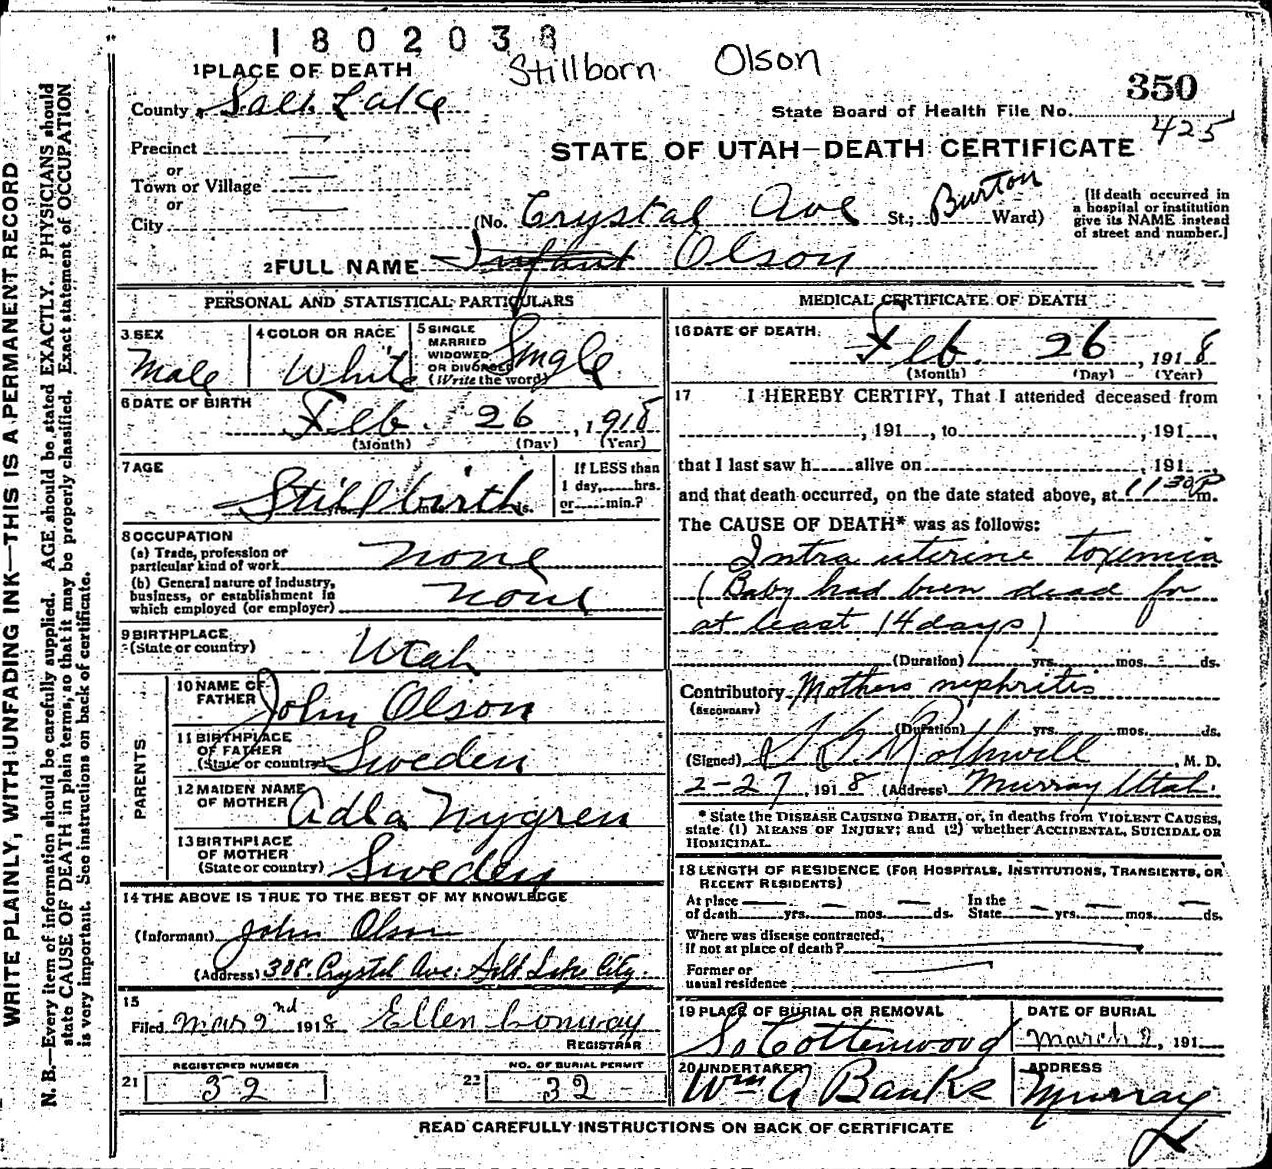 1802038
Stillborn Olson
350
425
1 PLACE OF DEATH
County Salt Lake
State Board of Health File No.
Precinct
or
Town or Village
or
City
STATE OF UTAH—DEATH CERTIFICATE
(No. Crystal Ave St.; Burton Ward)
[If death occurred in
a hospital or institution
give its NAME instead
of street and number.]
2 FULL NAME Infant Olson
PERSONAL AND STATISTICAL PARTICULARS
3 SEX
Male
4 COLOR OR RACE
White
5 SINGLE
MARRIED
WIDOWED
OR DIVORCED
(Write the word)
Single
6 DATE OF BIRTH
Feb. 26, 1918
(Month) (Day) (Year)
7 AGE
Stillbirth
If LESS than
1 day,......hrs.
or......min.?
8 OCCUPATION
(a) Trade, profession or
particular kind of work none
(b) General nature of industry,
business, or establishment in
which employed (or employer) none
9 BIRTHPLACE
(State or country) Utah
PARENTS
10 NAME OF
FATHER John Olson
11 BIRTHPLACE
OF FATHER
(State or country) Sweden
12 MAIDEN NAME
OF MOTHER Adla Nygren
13 BIRTHPLACE
OF MOTHER
(State or country) Sweden
14 THE ABOVE IS TRUE TO THE BEST OF MY KNOWLEDGE
(Informant) John Olson
(Address) 308 Crystal Ave. Salt Lake City.
15
Filed Mar 2nd 1918 Ellen Conway
REGISTRAR
REGISTERED NUMBER
21 32
NO. OF BURIAL PERMIT
22 32
MEDICAL CERTIFICATE OF DEATH
16 DATE OF DEATH
Feb. 26, 1918
(Month) (Day) (Year)
17 I HEREBY CERTIFY, That I attended deceased from
, 191 , to , 191 ,
that I last saw h alive on , 191 ,
and that death occurred, on the date stated above, at 11 30 P m.
The CAUSE OF DEATH* was as follows:
Intra uterine toxemia
(Baby had been dead for
at least 14 days)
(Duration) yrs. mos. ds.
Contributory Mothers nephritis
(SECONDARY)
(Duration) yrs. mos. ds.
(Signed) Rothwell, M. D.
2-27, 1918 (Address) Murray Utah.
* State the DISEASE CAUSING DEATH, or, in deaths from VIOLENT CAUSES,
state (1) MEANS OF INJURY; and (2) whether ACCIDENTAL, SUICIDAL OR
HOMICIDAL.
18 LENGTH OF RESIDENCE (FOR HOSPITALS, INSTITUTIONS, TRANSIENTS, OR
RECENT RESIDENTS)
At place
of death yrs. mos. ds.
In the
State yrs. mos. ds.
Where was disease contracted,
if not at place of death?
Former or
usual residence
19 PLACE OF BURIAL OR REMOVAL
So Cottonwood
DATE OF BURIAL
March 2, 191
20 UNDERTAKER
Wm A Banks
ADDRESS
Murray
READ CAREFULLY INSTRUCTIONS ON BACK OF CERTIFICATE
WRITE PLAINLY, WITH UNFADING INK—THIS IS A PERMANENT RECORD
N. B.—Every item of information should be carefully supplied. AGE should be stated EXACTLY. PHYSICIANS should
state CAUSE OF DEATH in plain terms, so that it may be properly classified. Exact statement of OCCUPATION
is very important. See instructions on back of certificate.